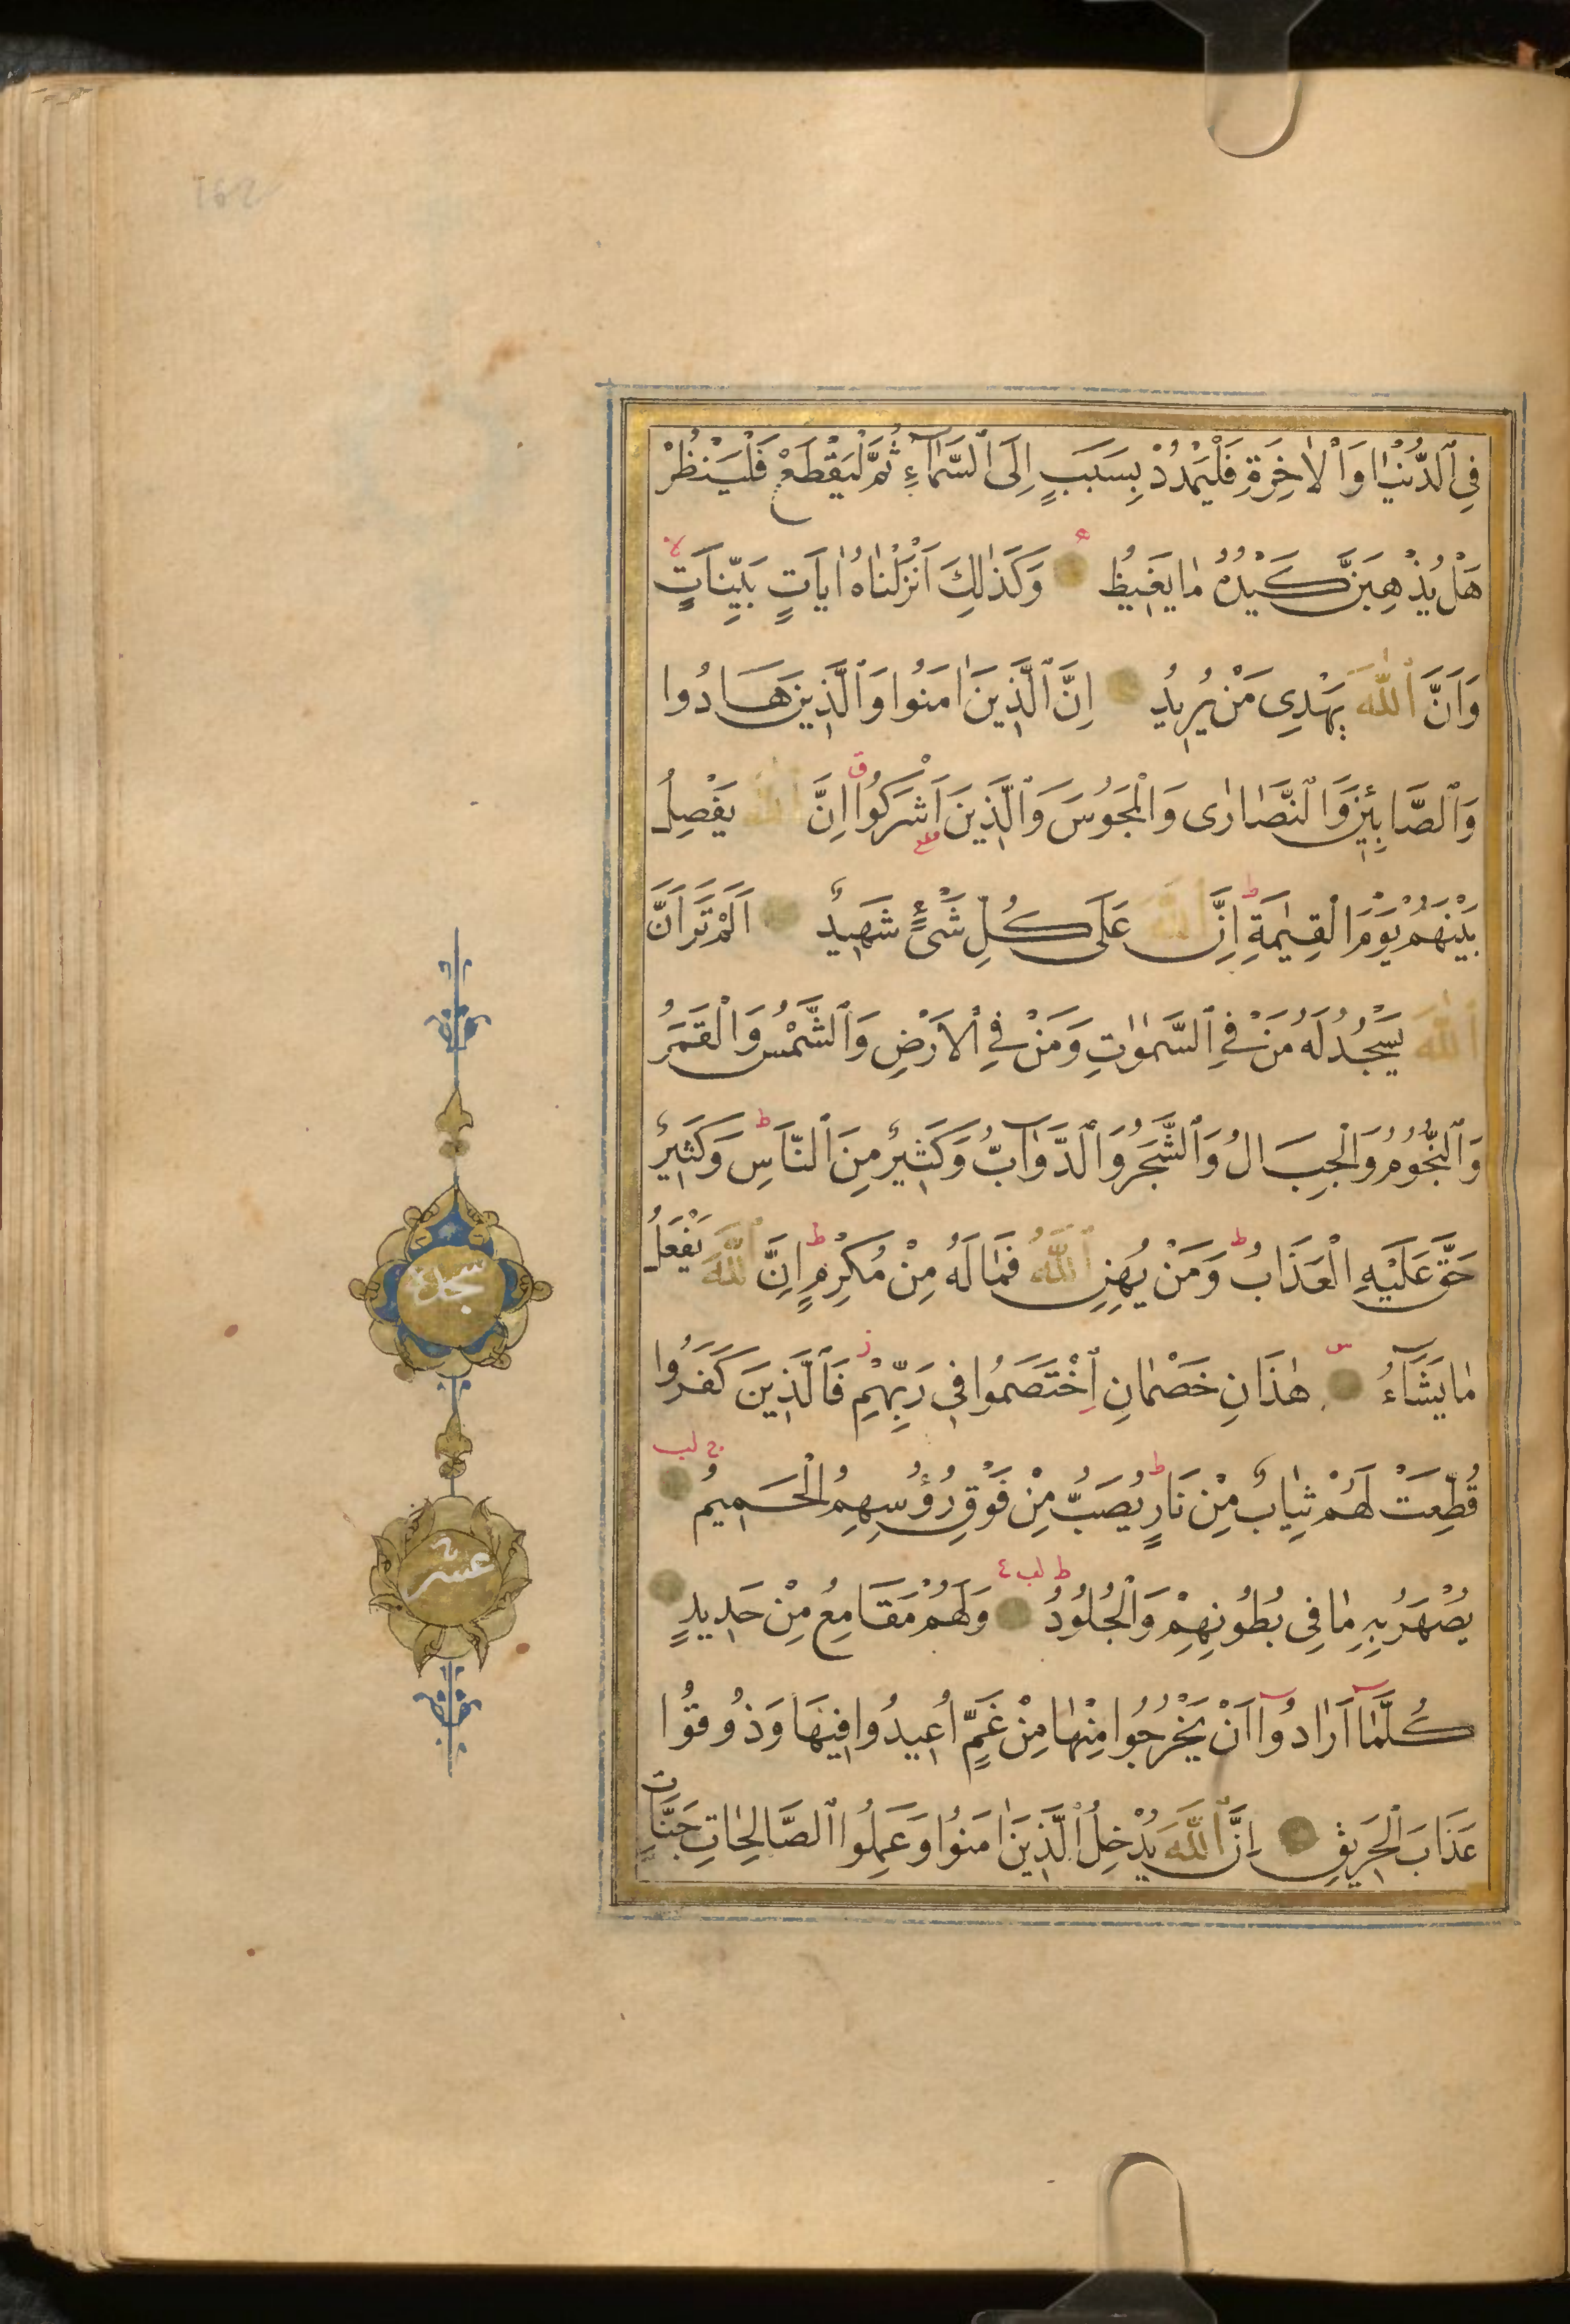 فِي ٱلدُّنْيَا وَٱلْاٰخِرَةِ فَلْيَمْدُدْ بِسَبَبٍ اِلَى ٱلسَّمَآءِ ثُمَّ لْيَقْطَعْ فَلْيَنْظُرْ
هَلْ يُذْهِبَنَّ كَيْدُهُ مَا يَغِيظُ وَكَذٰلِكَ اَنْزَلْنَاهُ اٰيَاتٍ بَيِّنَاتٍ لا
وَاَنَّ ٱللّٰهَ يَهْدِى مَنْ يُرِيدُ اِنَّ ٱلَّذِينَ اٰمَنُوا وَٱلَّذِينَ هَادُوا
وَٱلصَّابِئِينَ وَٱلنَّصَارٰى وَٱلْمَجُوسَ وَٱلَّذِينَ اَشْرَكُوا ق اِنَّ ٱللّٰهَ يَفْصِلُ
بَيْنَهُمْ يَوْمَ الْقِيٰمَةِ ط اِنَّ ٱللّٰهَ عَلَى كُلِّ شَىْءٍ شَهِيدٌ اَلَمْ تَرَ اَنَّ
ٱللّٰهَ يَسْجُدُ لَهُ مَنْ فِي ٱلسَّمٰوٰتِ وَمَنْ فِي ٱلْاَرْضِ وَٱلشَّمْسُ وَالْقَمَرُ
وَٱلنُّجُومُ وَالْجِبَالُ وَٱلشَّجَرُ وَٱلدَّوَآبُّ وَكَثِيرٌ مِنَ ٱلنَّاسِ ط وَكَثِيرٌ
حَقَّ عَلَيْهِ الْعَذَابُ ط وَمَنْ يُهِنِ ٱللّٰهُ فَمَا لَهُ مِنْ مُكْرِمٍ ط اِنَّ ٱللّٰهَ يَفْعَلُ
مَا يَشَآءُ هٰذَانِ خَصْمَانِ ٱخْتَصَمُوا فِى رَبِّهِمْ ز فَالَّذِينَ كَفَرُوا
قُطِّعَتْ لَهُمْ ثِيَابٌ مِنْ نَارٍ ط يُصَبُّ مِنْ فَوْقِ رُؤُسِهِمُ الْحَمِيمُ ج لب
يُصْهَرُ بِهِ مَا فِى بُطُونِهِمْ وَالْجُلُودُ ط لب ٤ وَلَهُمْ مَقَامِعُ مِنْ حَدِيدٍ
كُلَّمَآ اَرَادُوٓا اَنْ يَخْرُجُوا مِنْهَا مِنْ غَمٍّ اُعِيدُوا فِيهَا وَذُوقُوا
عَذَابَ الْحَرِيقِ اِنَّ ٱللّٰهَ يُدْخِلُ ٱلَّذِينَ اٰمَنُوا وَعَمِلُوا ٱلصَّالِحَاتِ جَنَّاتٍ
سجدة
عشر